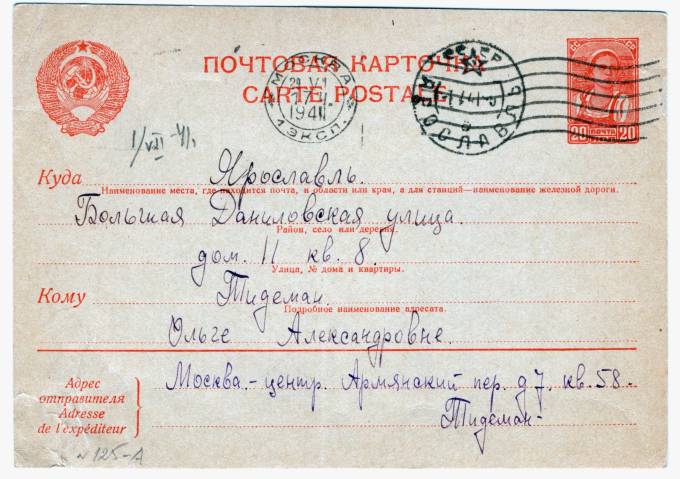 ПОЧТОВАЯ КАРТОЧКА
CARTE POSTALE
МОСКВА
1941
1 ЭКСП.
СССР
ЯРОСЛАВЛЬ
СССР
20 ПОЧТА 20
1/VII-41г.
Куда Ярославль.
Наименование места, где находится почта, и области или края, а для станций—наименование железной дороги.
Большая Даниловская улица.
Район, село или деревня.
дом. 11 кв. 8.
Улица, № дома и квартиры.
Кому Тидеман
Подробное наименование адресата.
Ольге Александровне.
Адрес отправителя
Adresse de l'expéditeur
Москва-центр. Армянский пер. д 7. кв. 58-
Тидеман-
№ 125-А